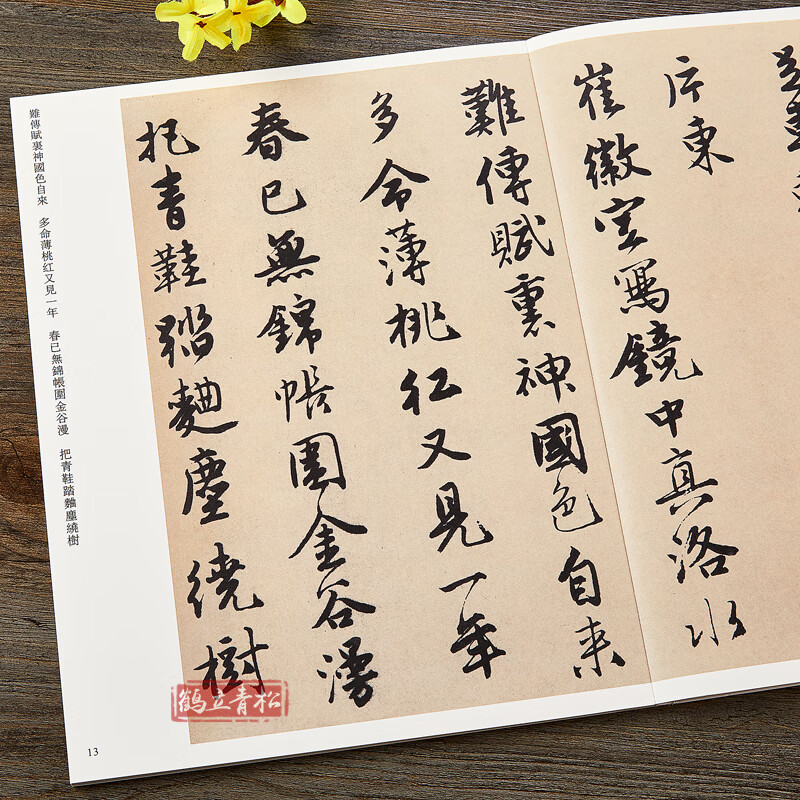 片東
崔徽空寫鏡中真洛水
難傳賦裏神國色自来
多命薄桃紅又見一年
春已無錦帳圍金谷漫
把青鞋踏麯塵繞樹
難傳賦裏神國色自來　多命薄桃紅又見一年　春已無錦帳圍金谷漫　把青鞋踏麯塵繞樹
13
鶴立青松